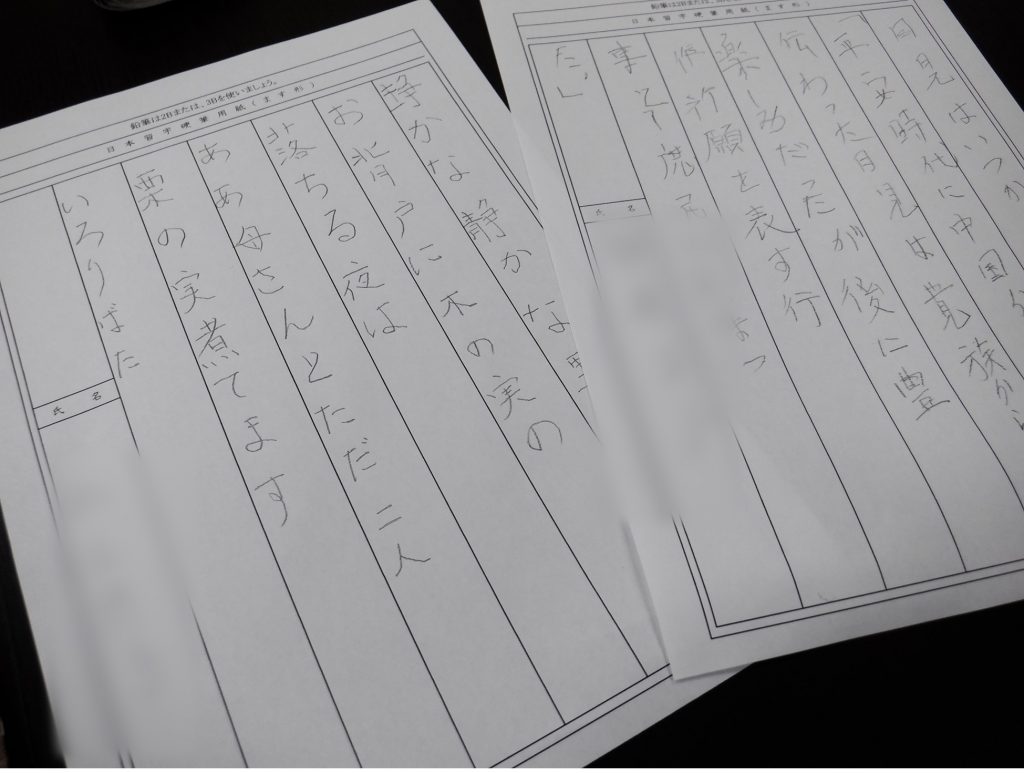 鉛筆は2Bまたは、3Bを使いましょう。
日本習字硬筆用紙(ます形)
静かな静かな
お背戸に木の実の
落ちる夜は
ああ母さんとただ二人
栗の実煮てます
いろりばた
氏名
鉛筆は2Bまたは、
日本習字硬筆用紙(ます形)
月見はいつか
平安時代に中国か
伝わった月見は貴族から
楽しみだったが後に豊
作祈願を表す行
事として よっ
た。
氏名